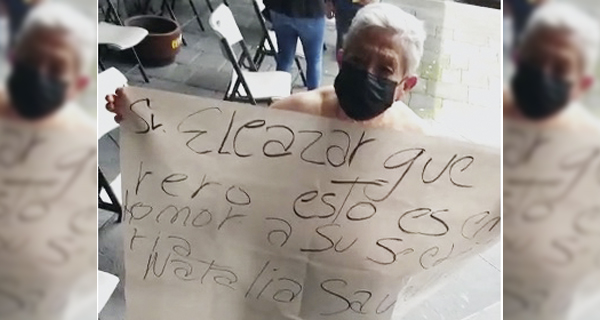 Sr. Eleazar gue
rrero esto es en
honor a su secreta
ria
Natalia